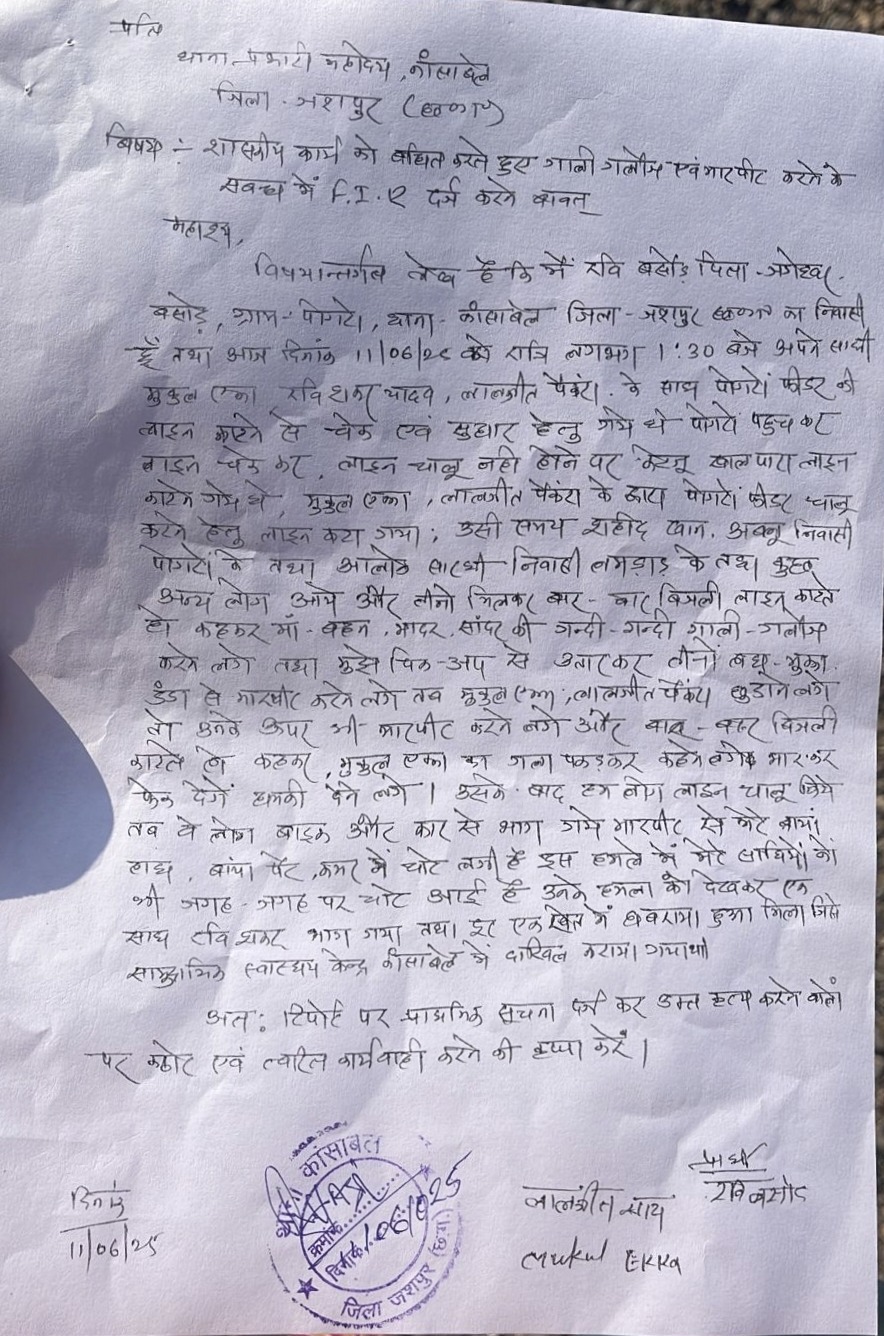 प्रति
थाना प्रभारी महोदय, काँसाबेल
जिला - जशपुर (छ०ग०)
विषय :- शासकीय कार्य को बाधित करते हुए गाली गलौज एवं मारपीट करने के
सबंध में F.I.R दर्ज करने बावत्
महाशय,
विषयान्तर्गत लेख है कि मैं रवि बसोड़ पिता - जगेश्वर
बसोड़, ग्राम - पोंगरो, थाना - काँसाबेल जिला - जशपुर छ०ग० का निवासी
हूँ तथा आज दिनांक 11/06/25 को रात्रि लगभग 1:30 बजे अपने साथी
मुकुल एक्का रवि शंकर यादव, लालजीत पैंकरा के साथ पोंगरो फीडर की
लाइन काटने से चेक एवं सुधार हेतु गये थे पोंगरो पहुच कर
लाइन चेक कर, लाइन चालू नही होने पर खालपारा लाइन
काटने गये थे, मुकुल एक्का, लालजीत पैंकरा के द्वारा पोंगरो फीडर चालू
करने हेतु लाइन काटा गया; उसी समय शहीद खान, अब्लू निवासी
पोंगरो के तथा आलोक सारथी निवासी लमडांड़ के तथा कुछ
अन्य लोग आये और तीनो मिलकर बार - बार बिजली लाइन काटते
हो कहकर माँ - बहन, मादर, सांदर की गन्दी - गन्दी गाली - गलौज
करने लगे तथा मुझे पिक-अप से उतारकर तीनों हाथ - मुक्का
डंडा से मारपीट करने लगे तब मुकुल एक्का, लालजीत पैंकरा छुडाने लगे
तो उनके ऊपर भी मारपीट करने लगे और बार - बार बिजली
काटते हो कहकर, मुकुल एक्का का गला पकड़कर कहने लगे मारकर
फेक देगें धमकी देने लगे। उसके बाद हम लोग लाइन चालू किये
तब वे लोग बाइक और कार से भाग गये मारपीट से मेरे बायां
हाथ, बांया पैर, कमर में चोट लगी है इस हमले में मेरे साथियों को
भी जगह - जगह पर चोट आई है उनके हमला को देखकर एक
साथी रवि शंकर भाग गया तथा दूर एक खेत में घबराया हुआ मिला जिसे
सामुदायिक स्वास्थय केन्द्र काँसाबेल में दाखिल कराया गया था।
अत: रिपोर्ट पर प्राथमिक सूचना दर्ज कर उक्त कृत्य करने वालों
पर कठोर एवं त्वरित कार्यवाही करने की कृपा करें।
प्रार्थी
रवि बसोड़
लालजीत साय
Mukul EKKA
दिनांक
11/06/25
थाना काँसाबेल
क्रमांक
दिनांक 11/06/2025
जिला जशपुर (छ.ग.)